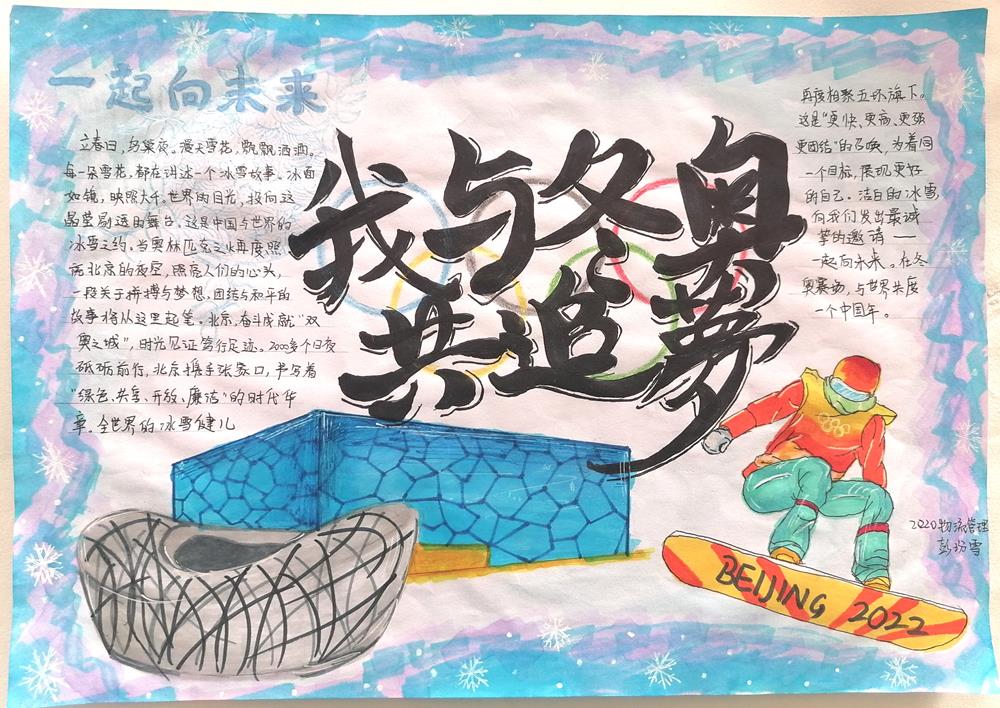 一起向未来
立春日，好集夜。漫天雪花，飘飘洒洒。
每一朵雪花，都在讲述一个冰雪故事。冰面
如镜，映照大千。世界的目光，投向这
晶莹剔透的舞台。这是中国与世界的
冰雪之约。当奥林匹克之火再度照
亮北京的夜空，照亮人们的心头，
一段关于拼搏与梦想、团结与和平的
故事将从这里起笔。北京，奋斗成就“双
奥之城”，时光见证笃行足迹。2000多个日夜
砥砺前行，北京携手张家口，书写着
“绿色、共享、开放、廉洁”的时代华
章。全世界的冰雪健儿
我与冬奥
共追夢
再度相聚五环旗下。
这是“更快、更高、更强
更团结”的召唤，为着同
一个目标，展现更好
的自己。洁白的冰雪，
向我们发出最诚
挚的邀请——
一起向未来。在冬
奥赛场，与世界共度
一个中国年。
2020物流管理
彭玢雪
BEIJING 2022